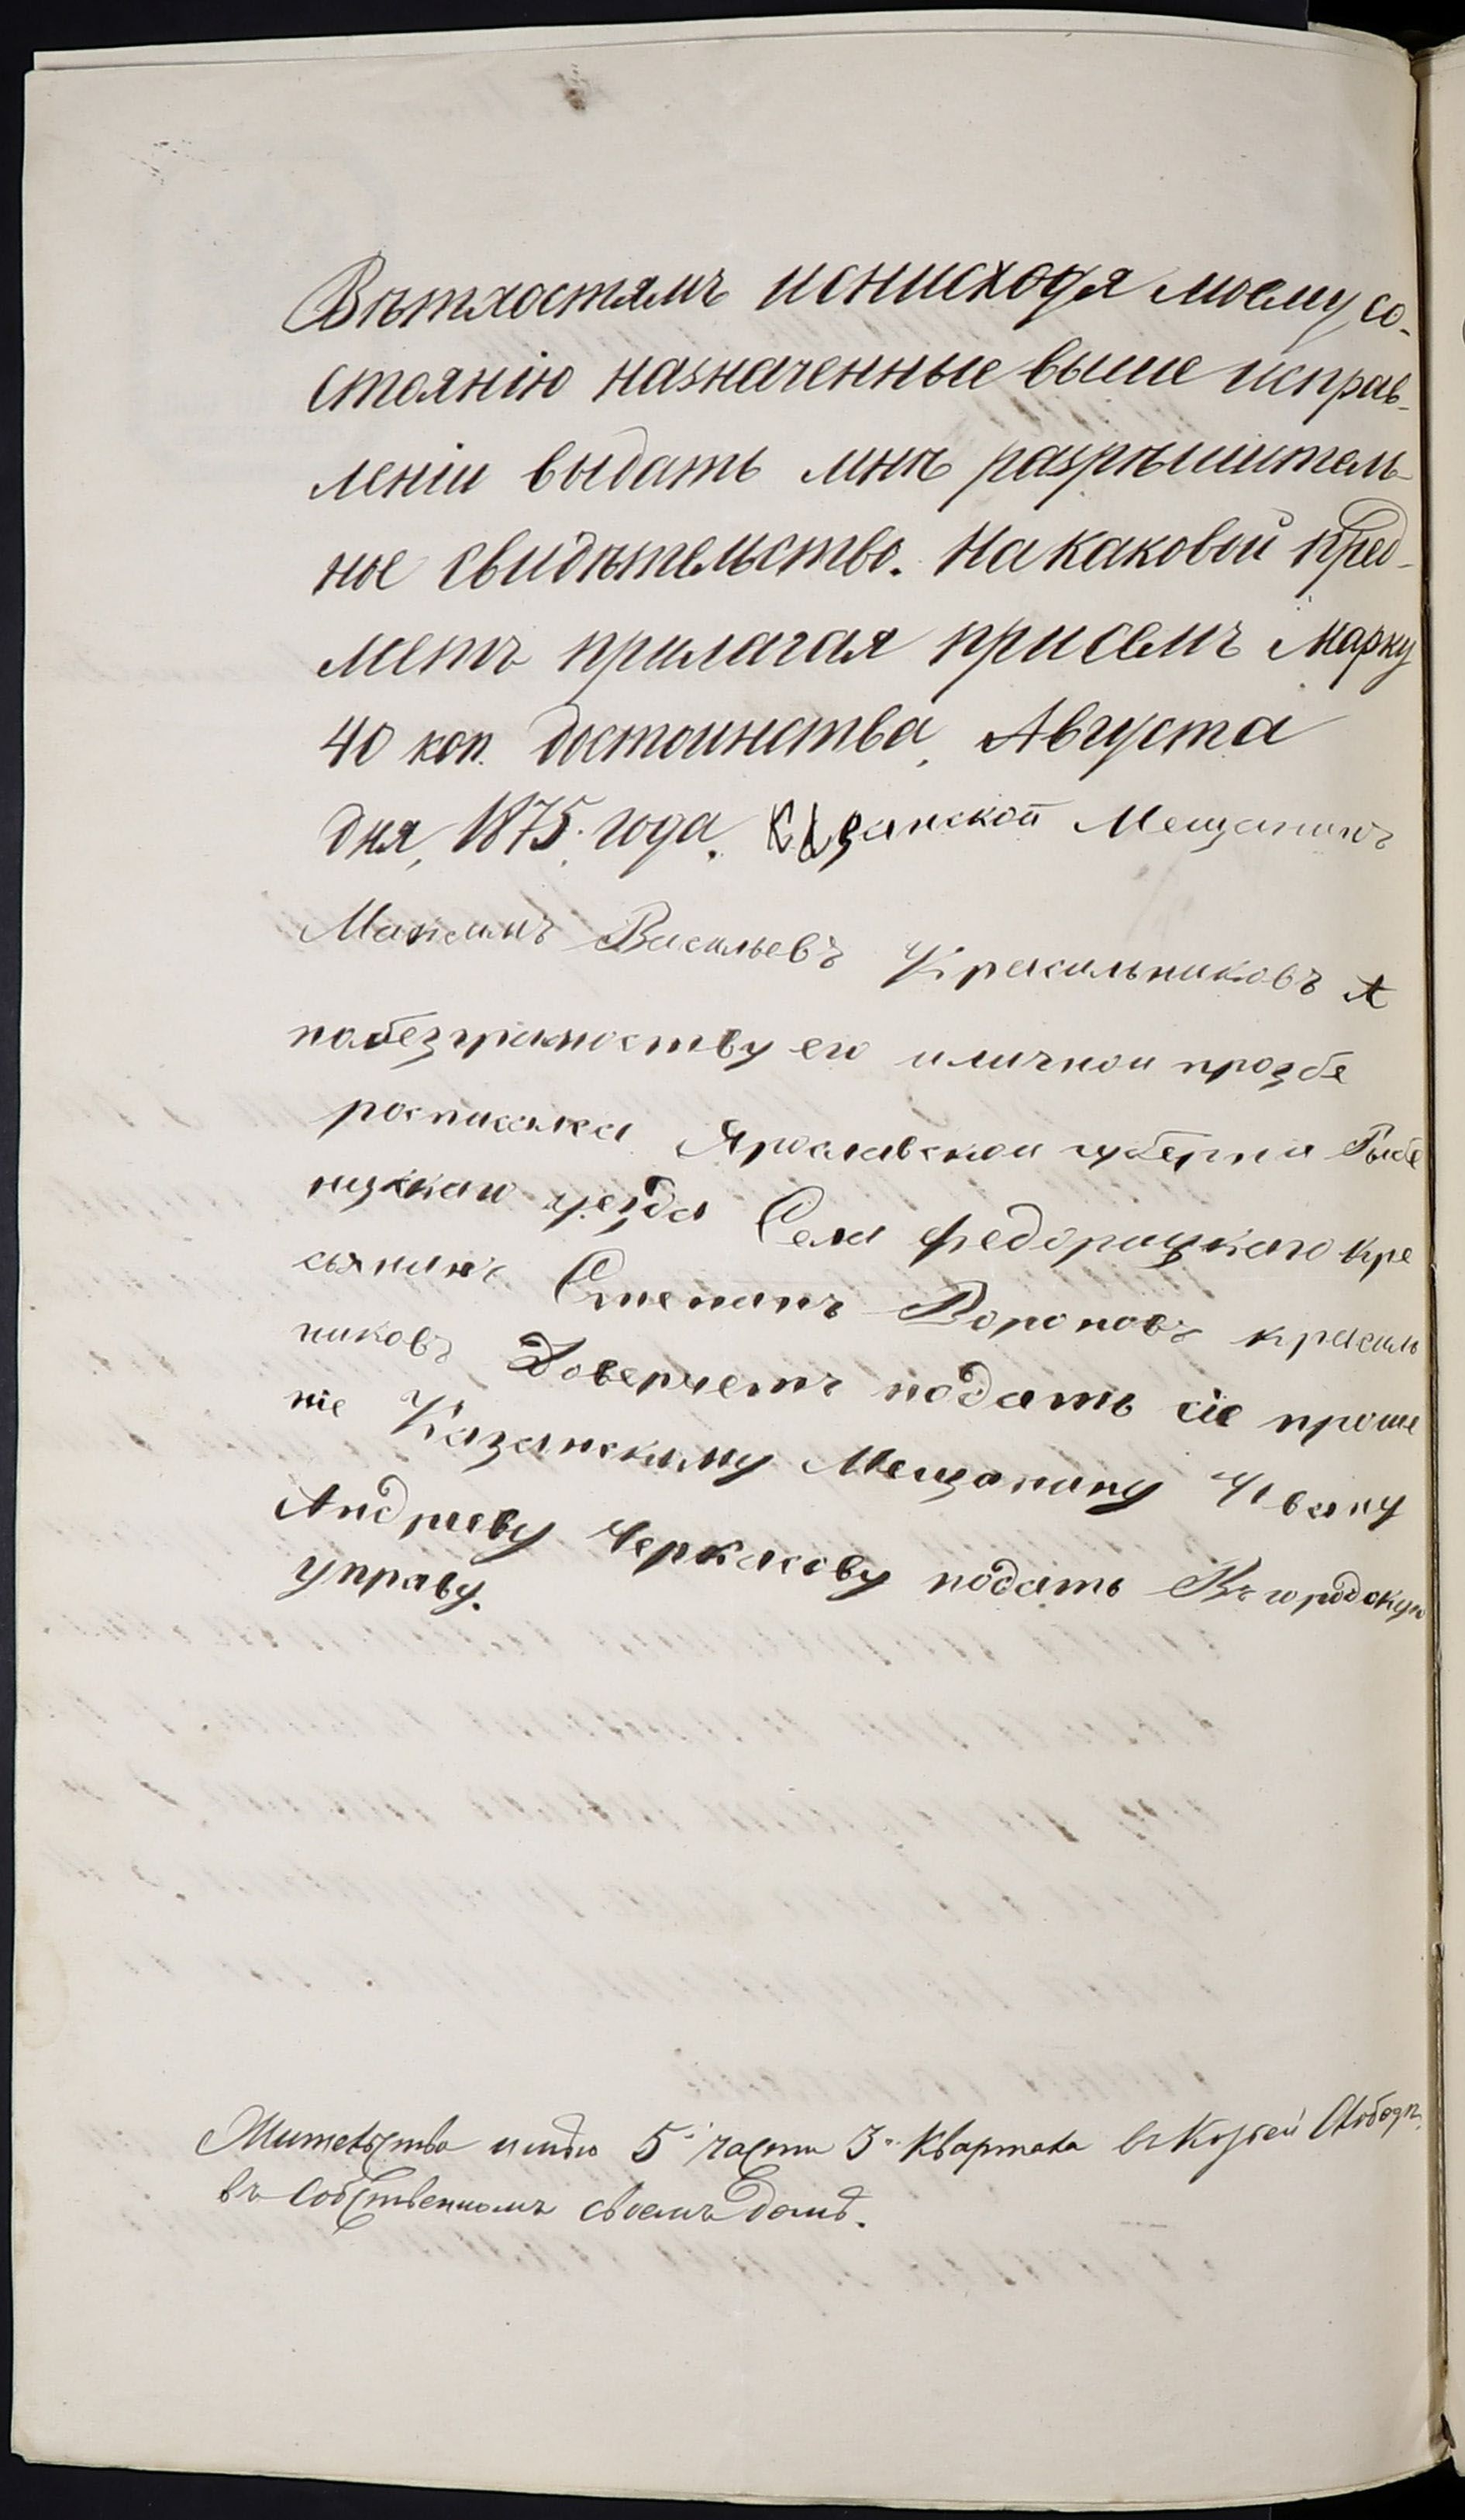 Вѣтхостямъ иснисходя моему со-
стоянію назначенные выше исправ-
леніи выдать мнѣ разрѣшитель-
ное свидѣтельство. На каковой пред-
метъ прилагая присемъ марку
40 коп. достоинства, Августа
дня, 1875. года. Казанской Мещанинъ
Максимъ Васильевъ Красильниковъ А
побезграмоству его иличной прозбе
росписался Ярославской губерни Рыбе
нускаго уезда Села Федорицкаго Кре
сьянинъ Степанъ Вороновъ красиль
никовъ Доверяетъ подать сіе проше
ніе Казанскому Мещанину Ивану
Андрееву Черкасову подать Въ городскую
управу.
Жительство имѣю 5й части 3го Квартала въ Козьей Слободѣ,
въ собственномъ своемъ домѣ.